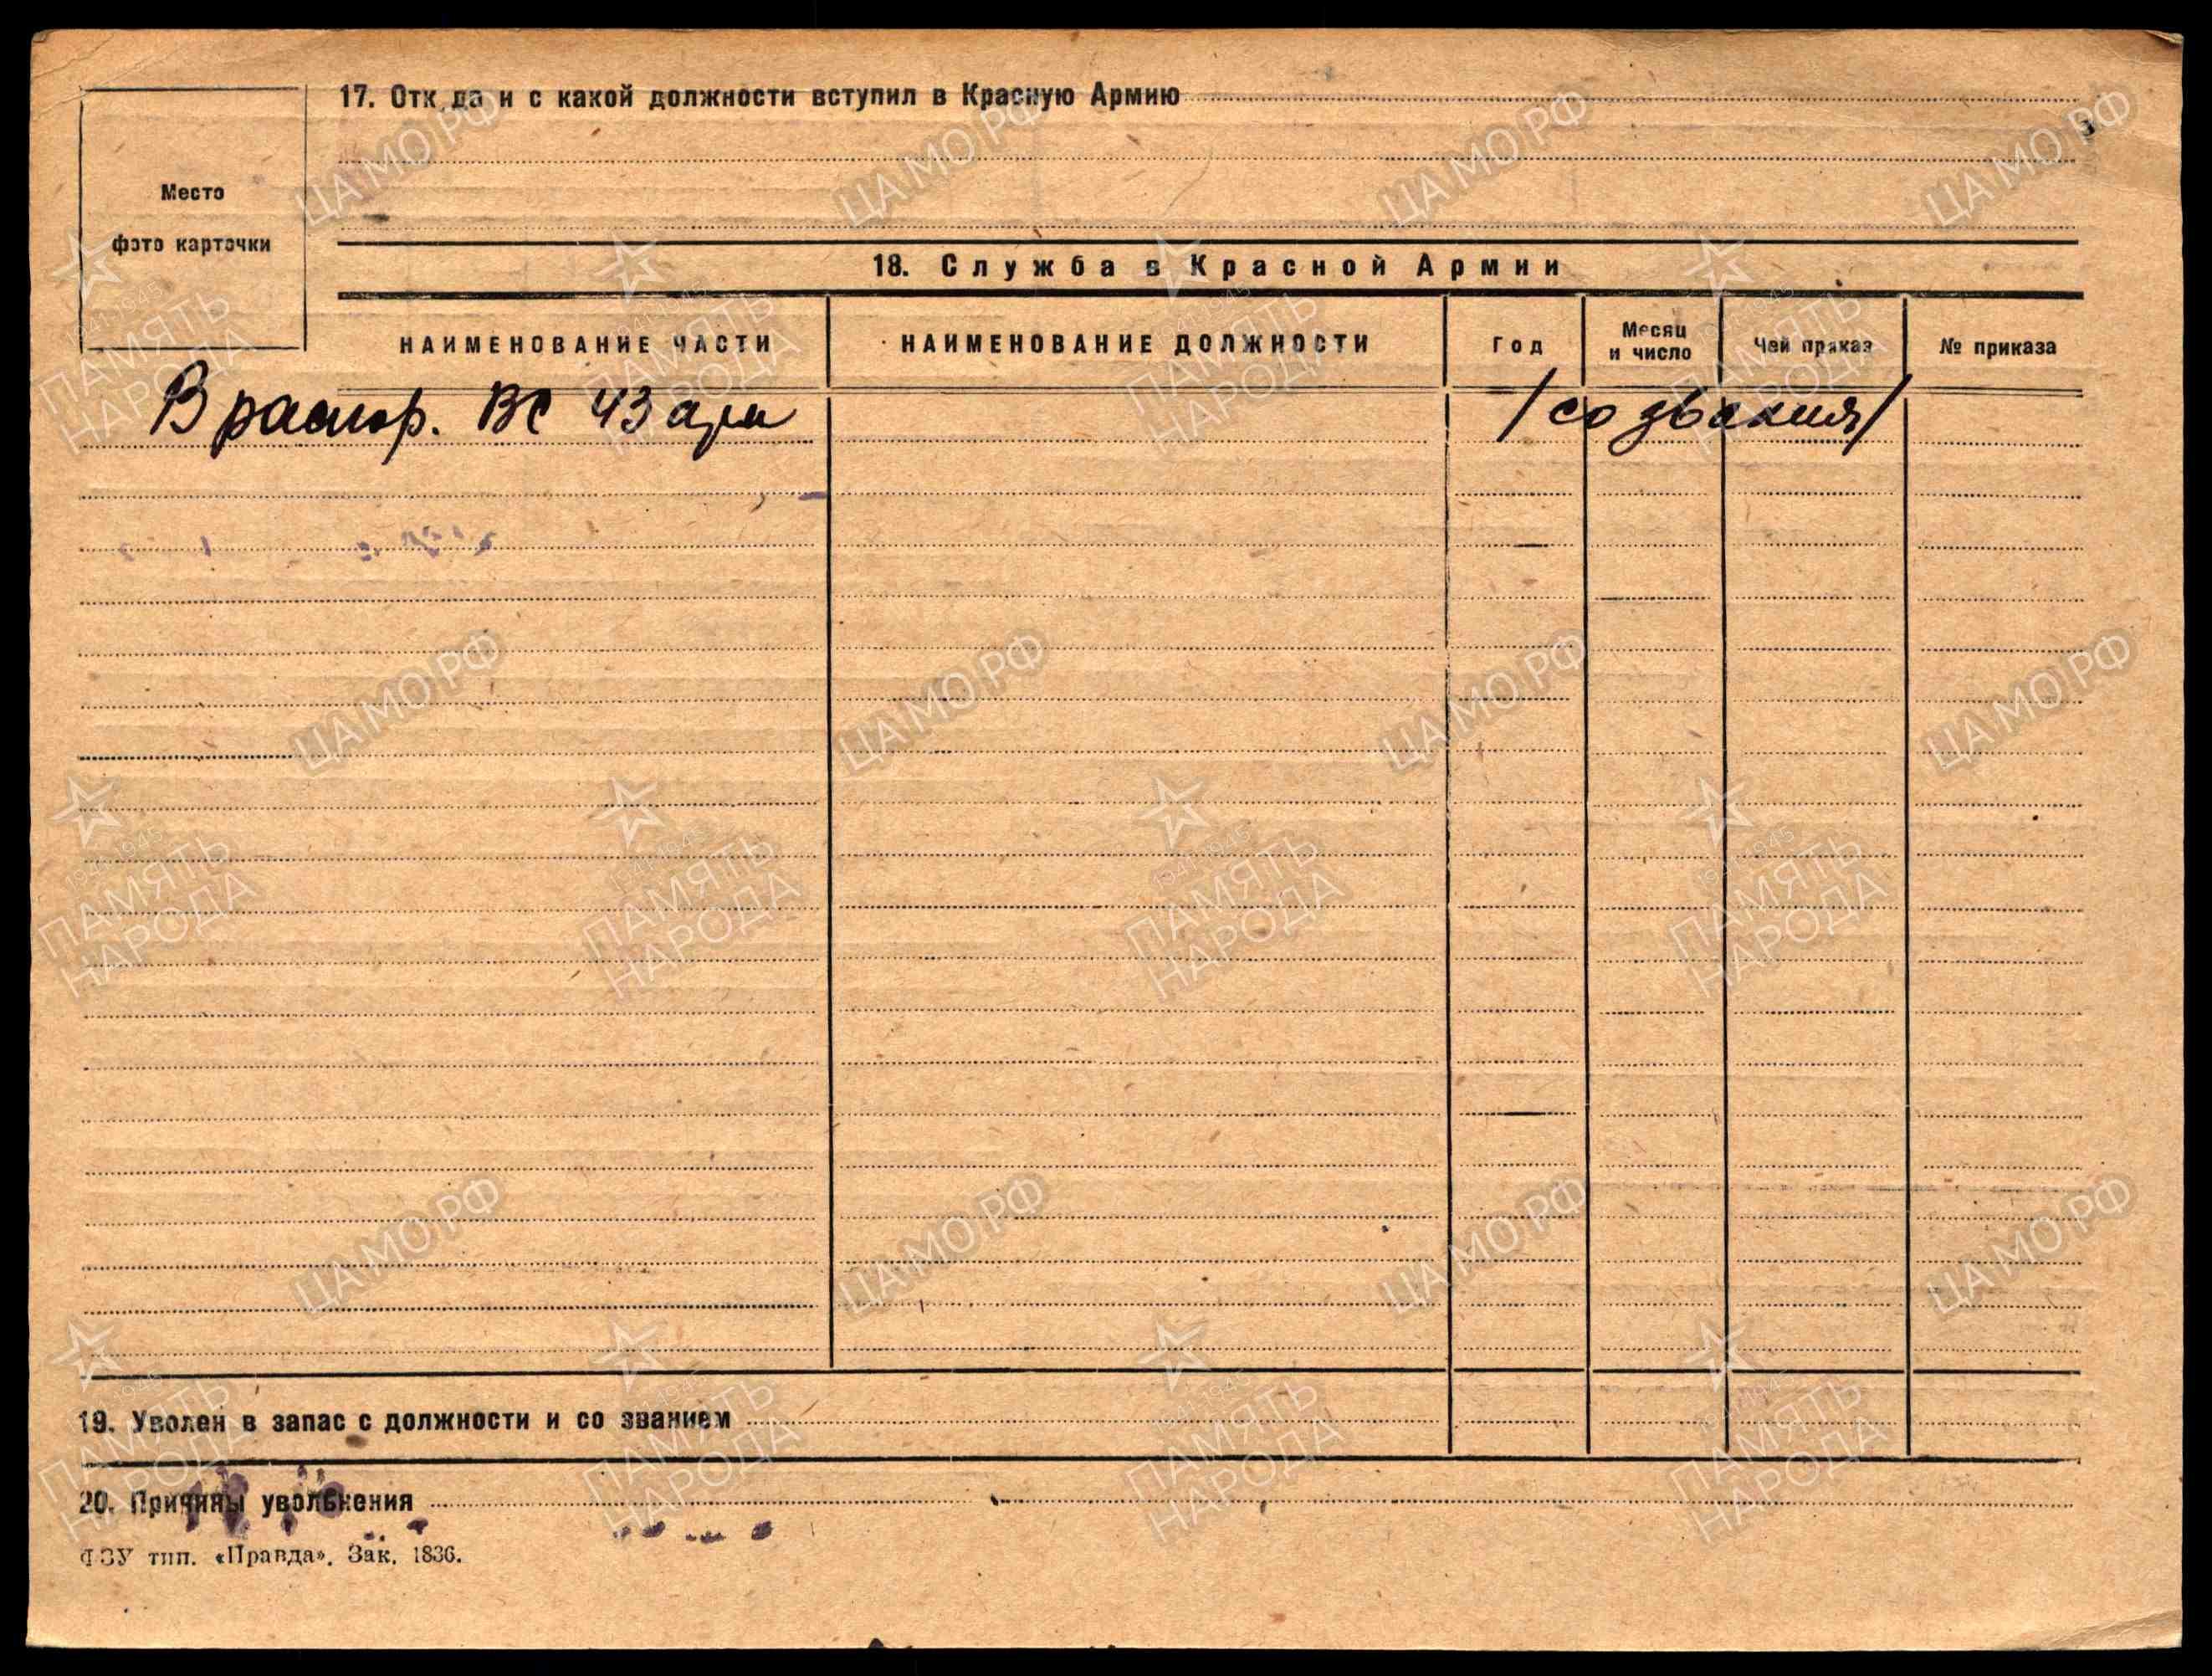 17. Отк да и с какой должности вступил в Красную Армию
Место
фото карточки
18. Служба в Красной Армии
НАИМЕНОВАНИЕ ЧАСТИ НАИМЕНОВАНИЕ ДОЛЖНОСТИ Год Месяц и число Чей приказ № приказа
В распор. ВС 43 арм /со звания/
19. Уволен в запас с должности и со званием
20. Причины увольнения
ФЗУ тип. «Правда». Зак. 1836.
ЦАМО РФ
1941-1945
ПАМЯТЬ
НАРОДА